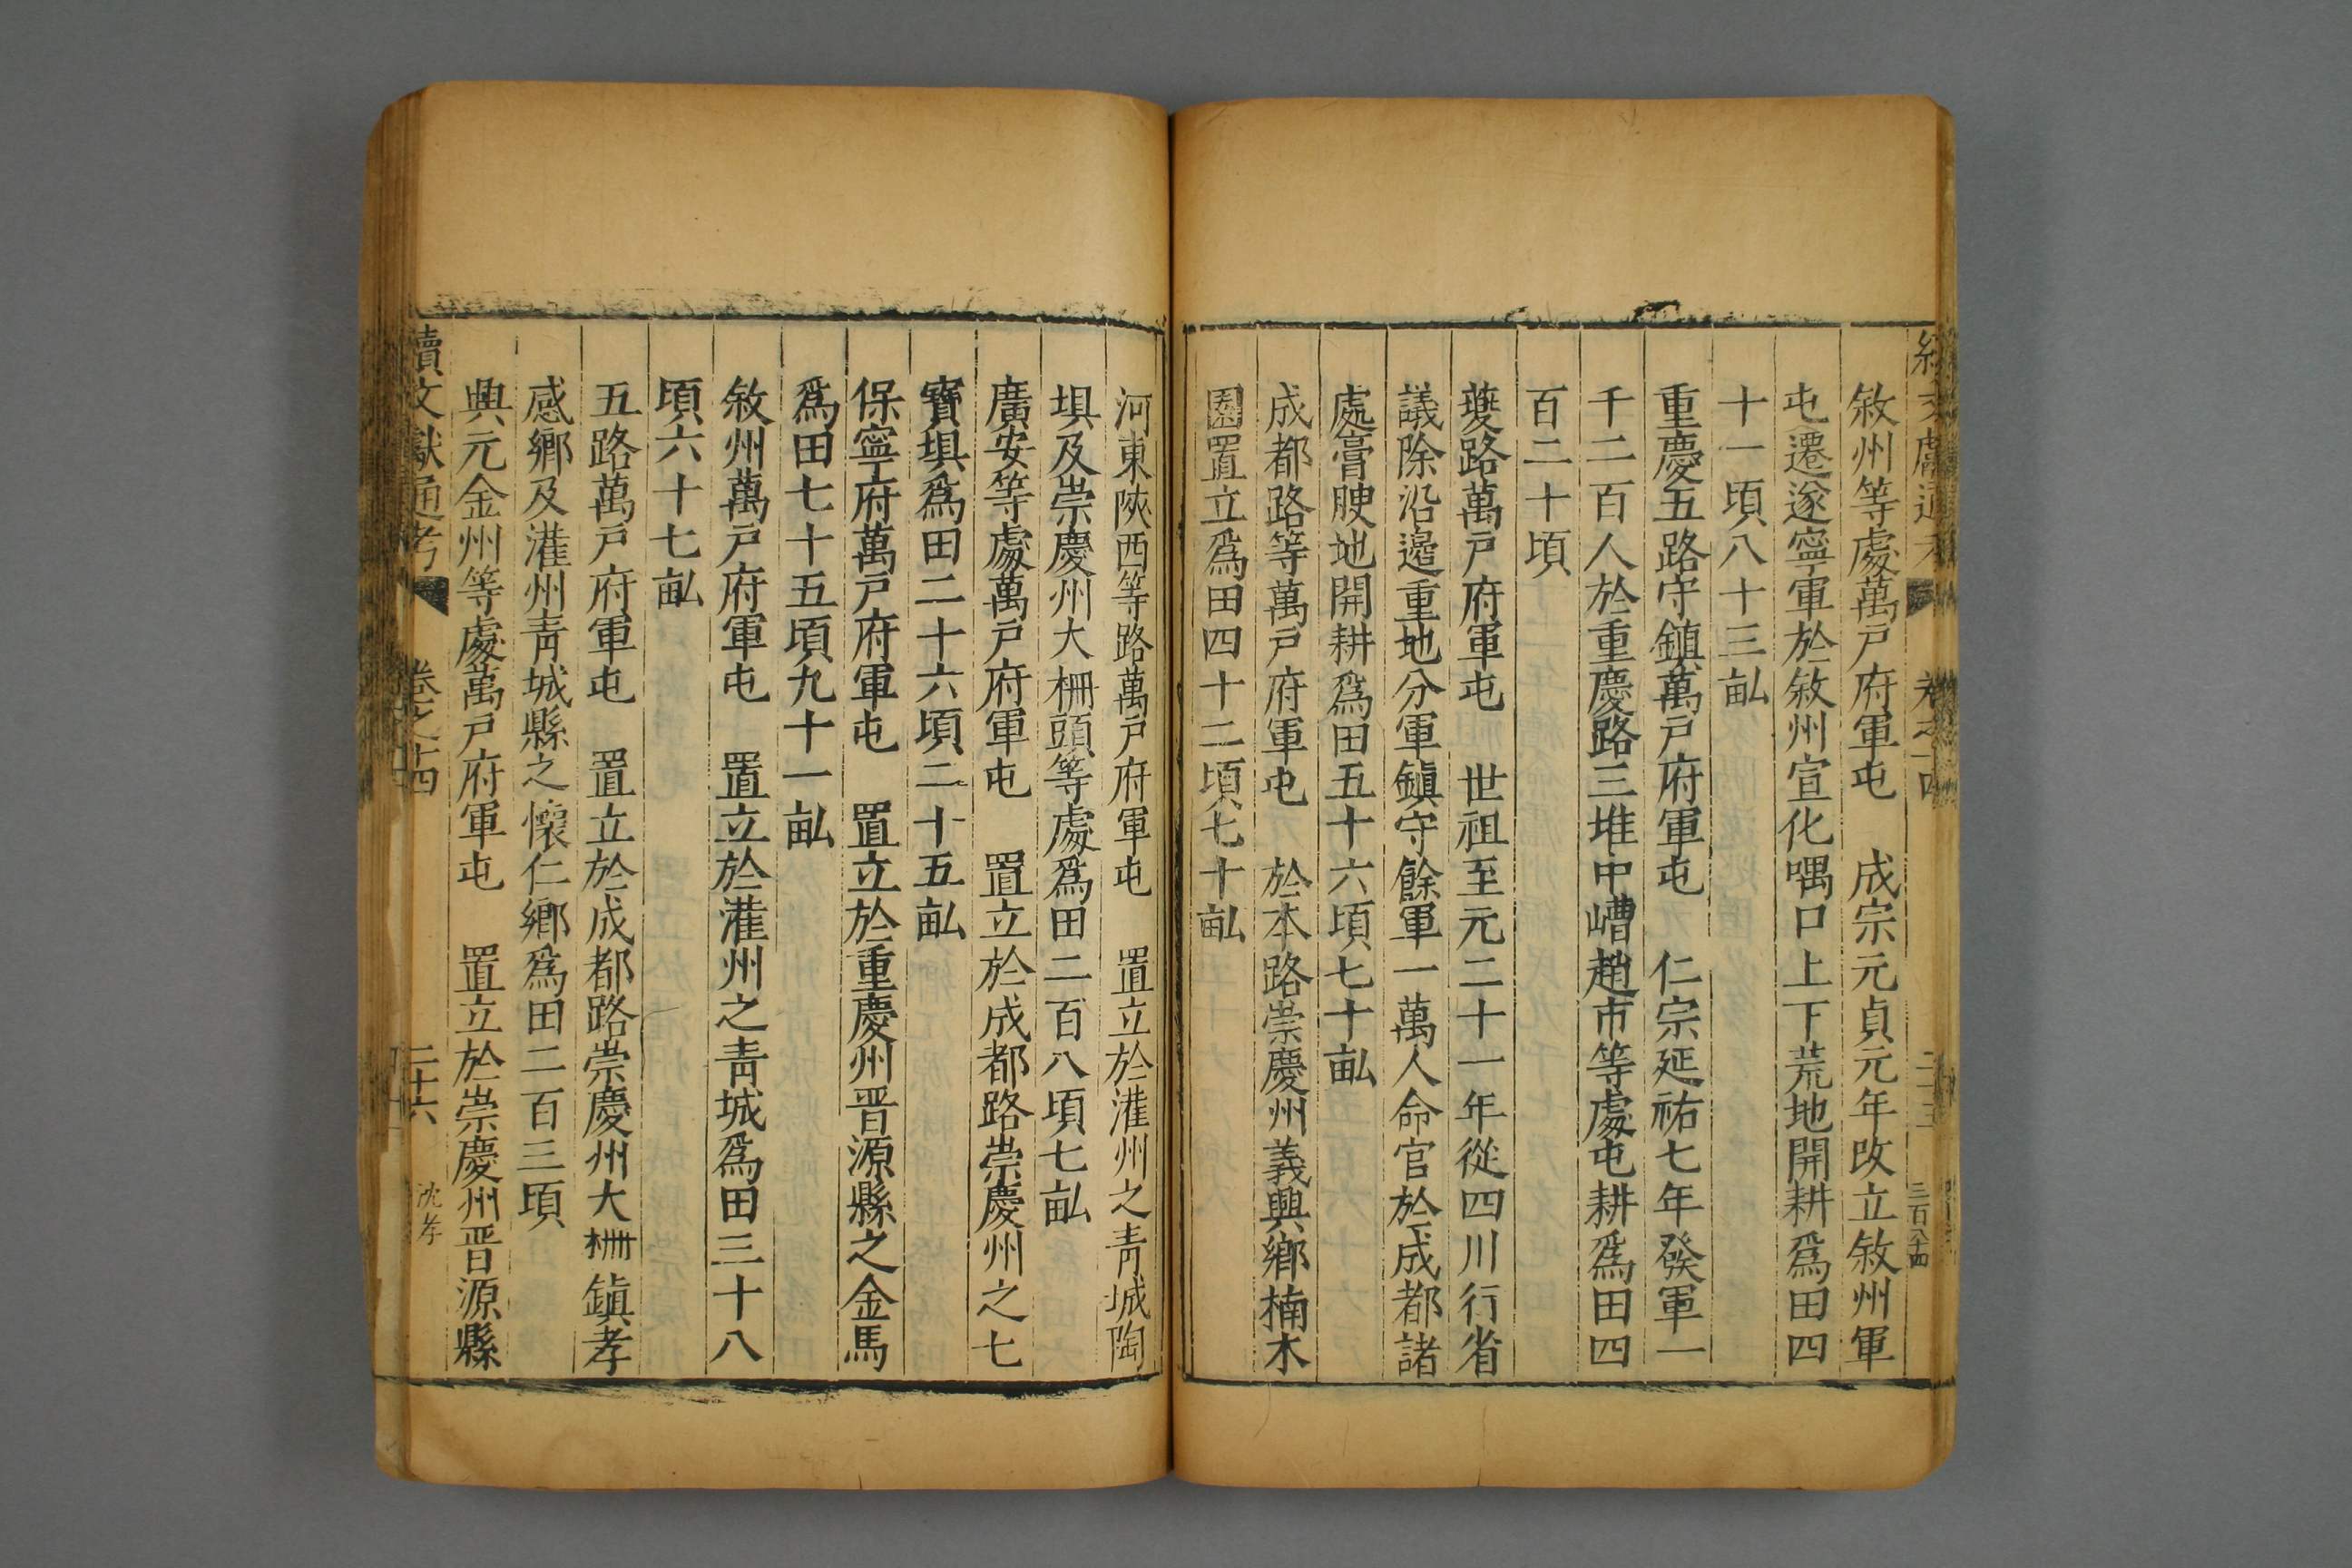 敘州等處萬戶府軍屯　成宗元貞元年改立敘州軍
屯遷遂寧軍於敘州宣化喁口上下荒地開耕爲田四
十一頃八十三畝
重慶五路守鎮萬戶府軍屯　仁宗延祐七年發軍一
千二百人於重慶路三堆中嶆趙市等處屯耕爲田四
百二十頃
夔路萬戶府軍屯　世祖至元二十一年從四川行省
議除沿邊重地分軍鎮守餘軍一萬人命官於成都諸
處膏腴地開耕爲田五十六頃七十畝
成都路等萬戶府軍屯　於本路崇慶州義興鄉楠木
園置立爲田四十二頃七十畝
河東陝西等路萬戶府軍屯　置立於灌州之青城陶
垻及崇慶州大柵頭等處爲田二百八頃七畝
廣安等處萬戶府軍屯　置立於成都路崇慶州之七
寶垻爲田二十六頃二十五畝
保寧府萬戶府軍屯　置立於重慶州晋源縣之金馬
爲田七十五頃九十一畝
敘州萬戶府軍屯　置立於灌州之青城爲田三十八
頃六十七畝
五路萬戶府軍屯　置立於成都路崇慶州大柵鎮孝
感鄉及灌州青城縣之懷仁鄉爲田二百三頃
興元金州等處萬戶府軍屯　置立於崇慶州晋源縣
續文獻通考　卷之十四　二十六　沈孝